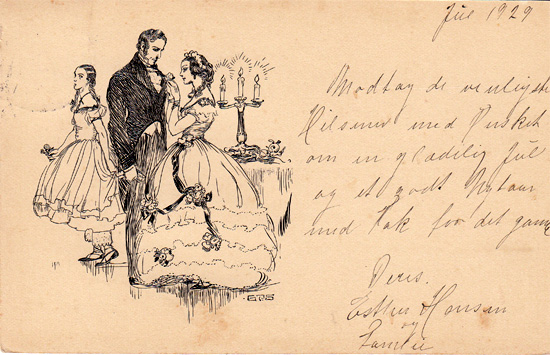 Jul 1929
Modtag de venligste
Hilsener med Ønsket
om en glædelig Jul
og et godt Nytaar
med Tak for det gamle
Deres.
Esther Hansen
og
Familie